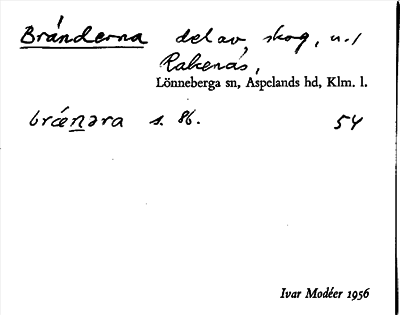 Bränderna del av skog, u./
Rakenäs,
Lönneberga sn, Aspelands hd, Klm. l.
bræ̀nəra s. 86. 54
Ivar Modéer 1956